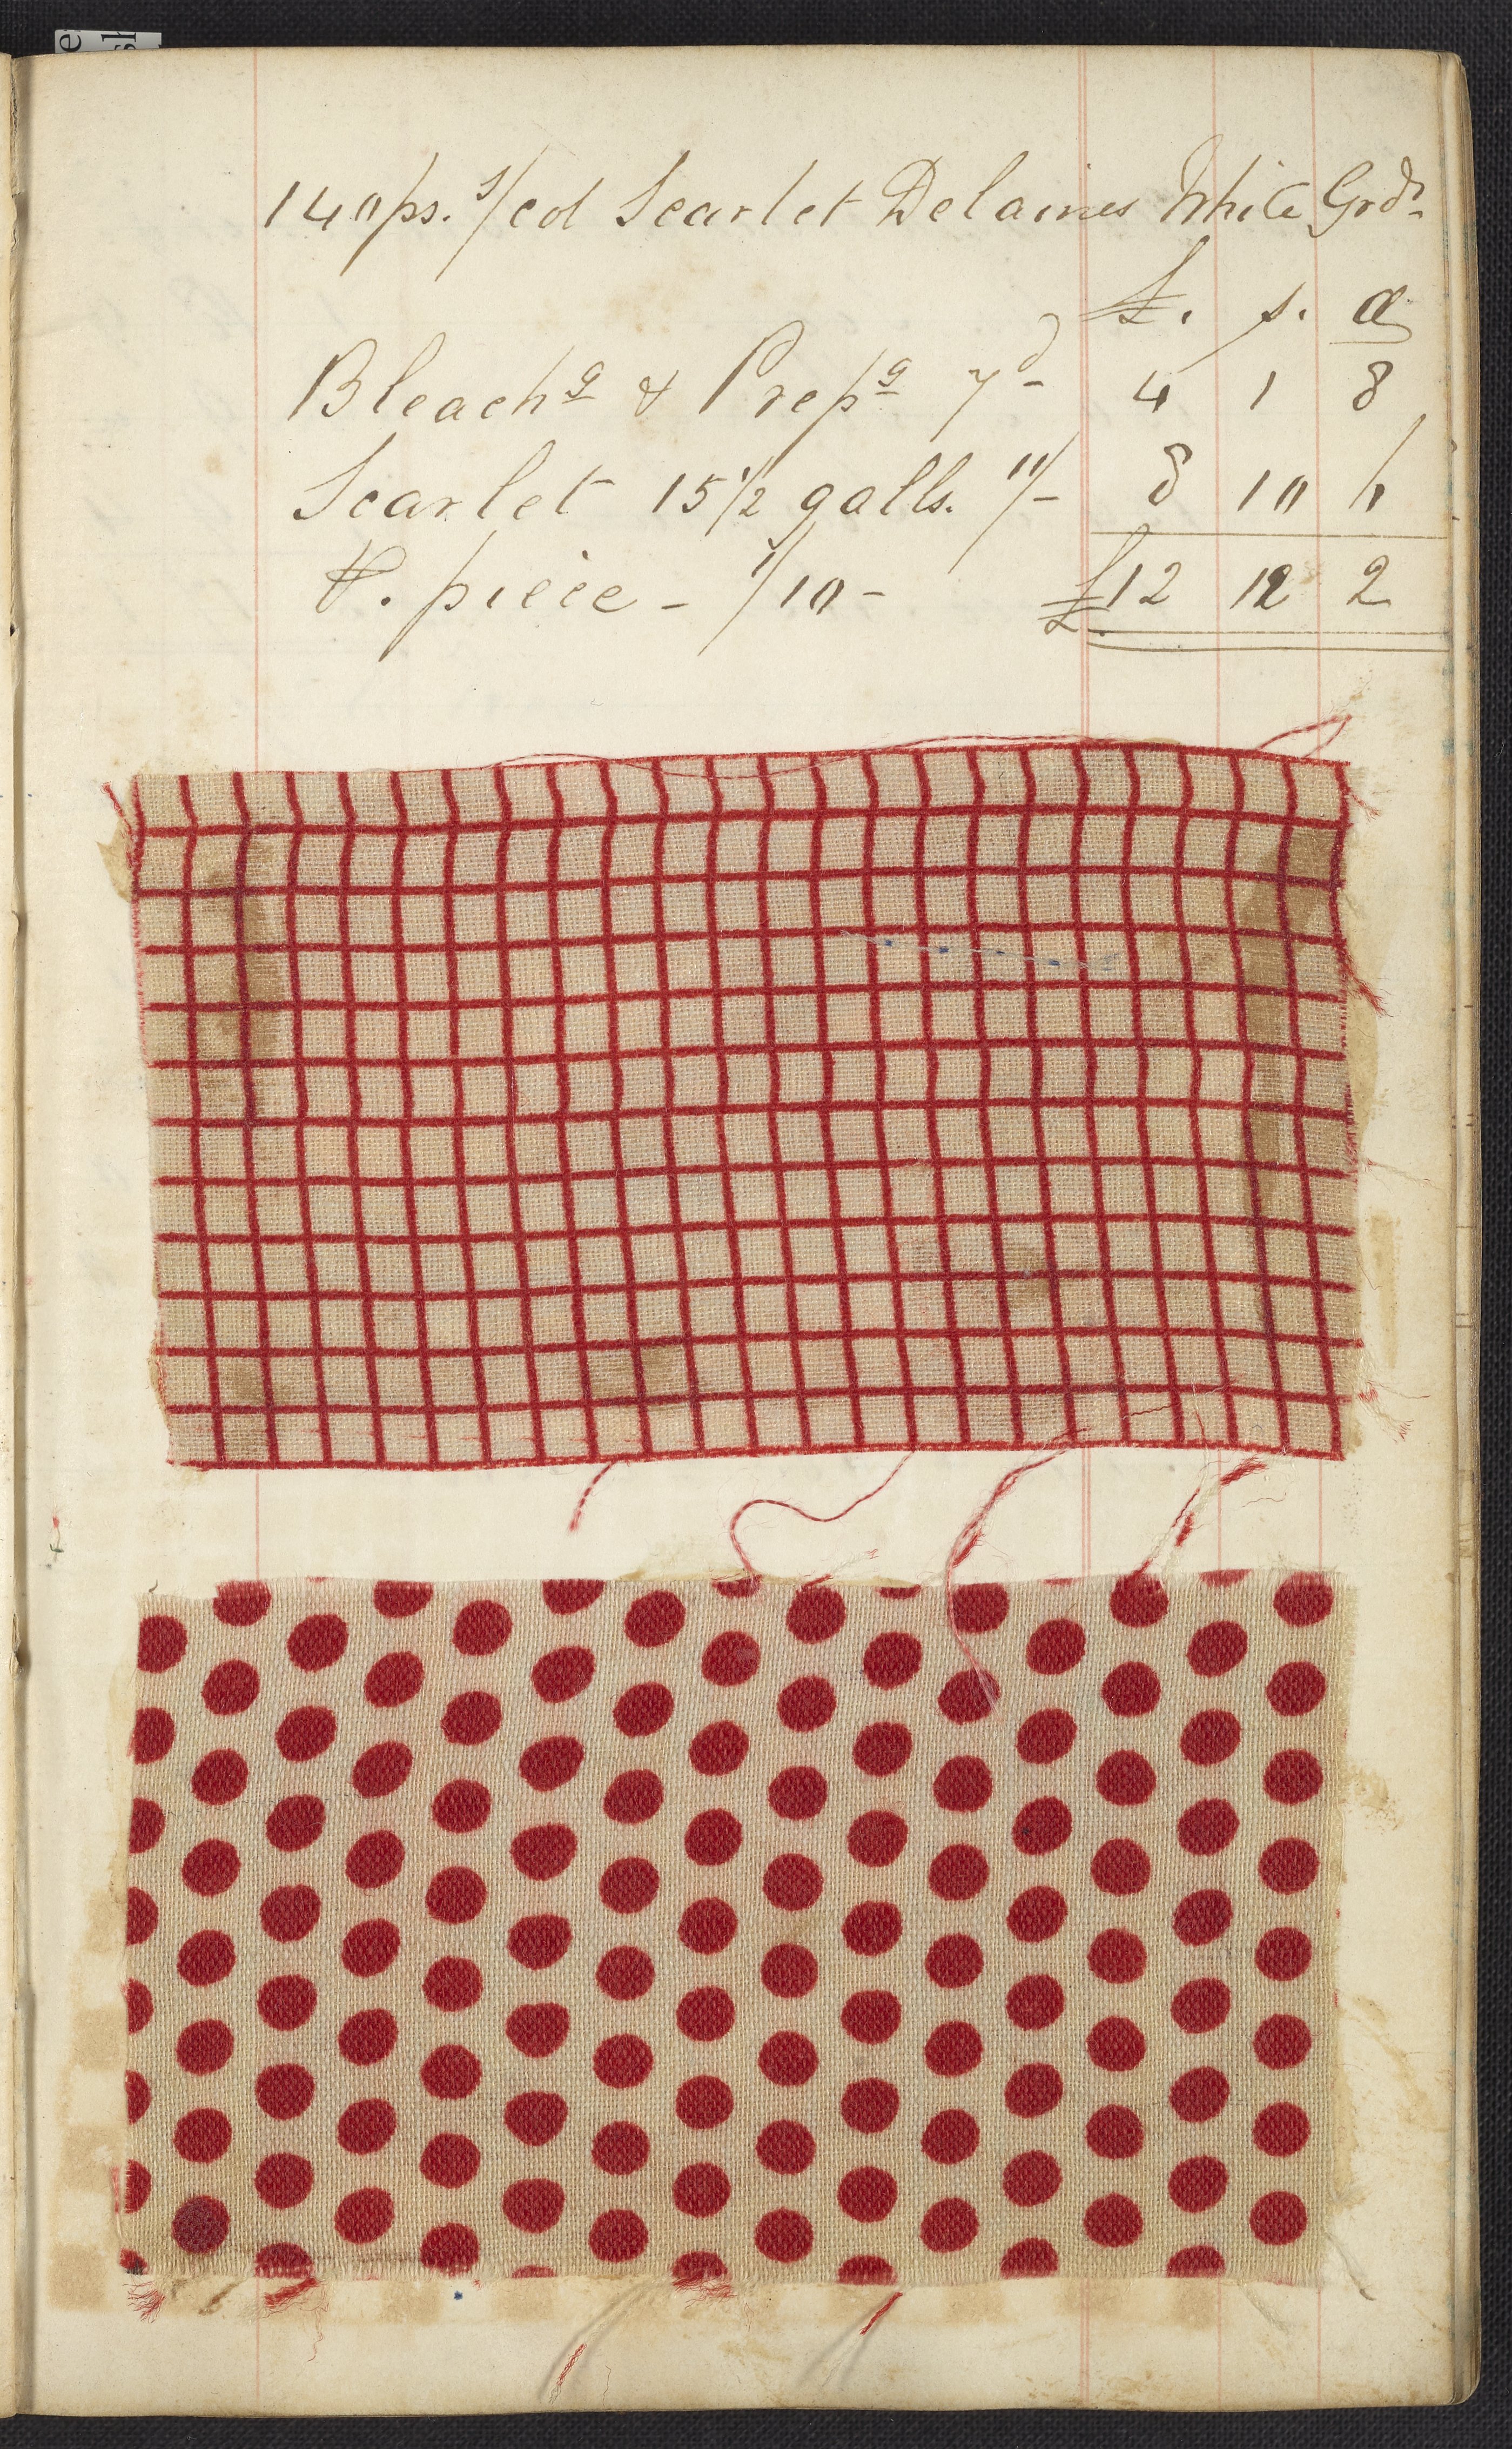 140 ps. 1/col Scarlet Delaines White Grds.
£. s. d
Bleachg & Prepg 7d - 4 1 8
Scarlet 15 1/2 galls. 11/- 8 10 6
P. piece - 1/10 - £12 12 2